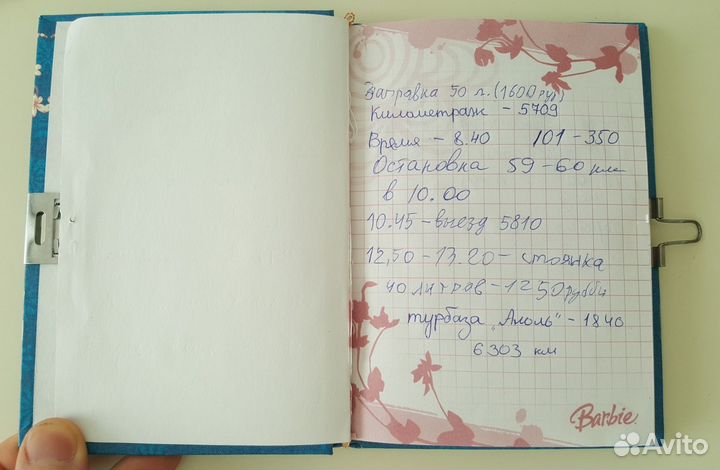 Заправка 50 л. (1600 руб)
Километраж - 5709
Время - 8.40 101-350
Остановка 59-60 км
в 10.00
10.45 - выезд 5810
12,50 - 13.20 - стоянка
40 литров - 1250 рубби
турбаза "Алоль" - 1840
6303 км
Barbie
Avito